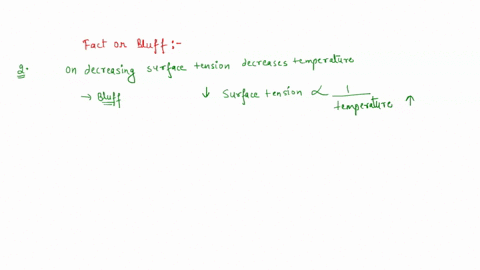 Fact or Bluff :-
2. on decreasing surface tension decreases temperature
→ Bluff ↓ Surface tension ∝ 1 / temperature ↑